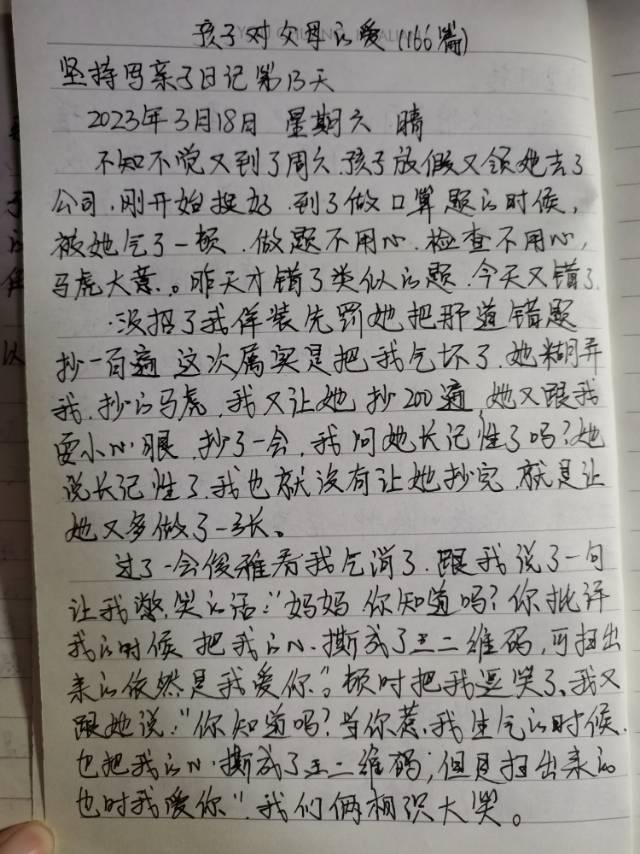 孩子对父母的爱(166篇)
坚持写亲子日记第13天
2023年3月18日 星期六 晴
不知不觉又到了周六.孩子放假又领她去了
公司.刚开始挺好.到了做口算题的时候,
被她气了一顿.做题不用心.检查不用心,
马虎大意.。昨天才错了类似的题.今天又错了.
没招了我佯装先罚她把那道错题
抄一百遍 这次属实是把我气坏了.她糊弄
我.抄的马虎,我又让她抄200遍,她又跟我
耍小心眼.抄了一会,我问她长记性了吗?她
说长记性了.我也就没有让她抄完.就是让
她又多做了一张。
过了一会俊雅看我气消了.跟我说了一句
让我憋笑的话:“妈妈 你知道吗?你批评
我的时候 把我的心撕成了二维码,可扫出
来的依然是我爱你”。顿时把我逗笑了、我又
跟她说:“你知道吗?当你惹我生气的时候.
也把我的心撕成了二维码;但是扫出来的
也时我爱你”.我们俩相识大笑。